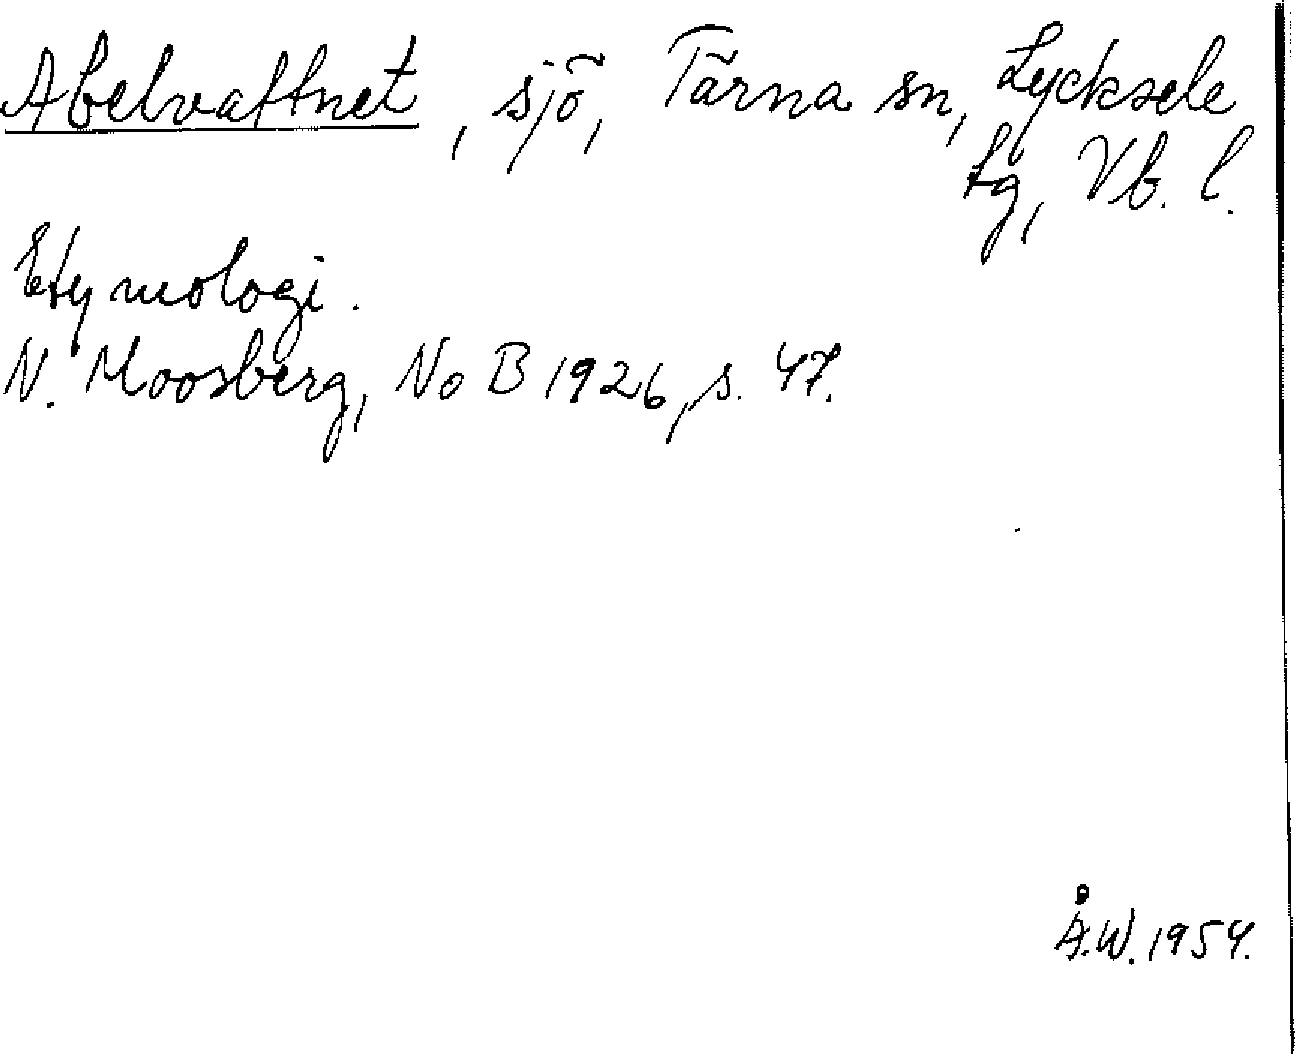 Abelvattnet, sjö, Tärna sn, Lycksele
tg, Vb. l.
Etymologi.
N. Moosberg, NoB 1926, s. 47.
Å.W. 1954.